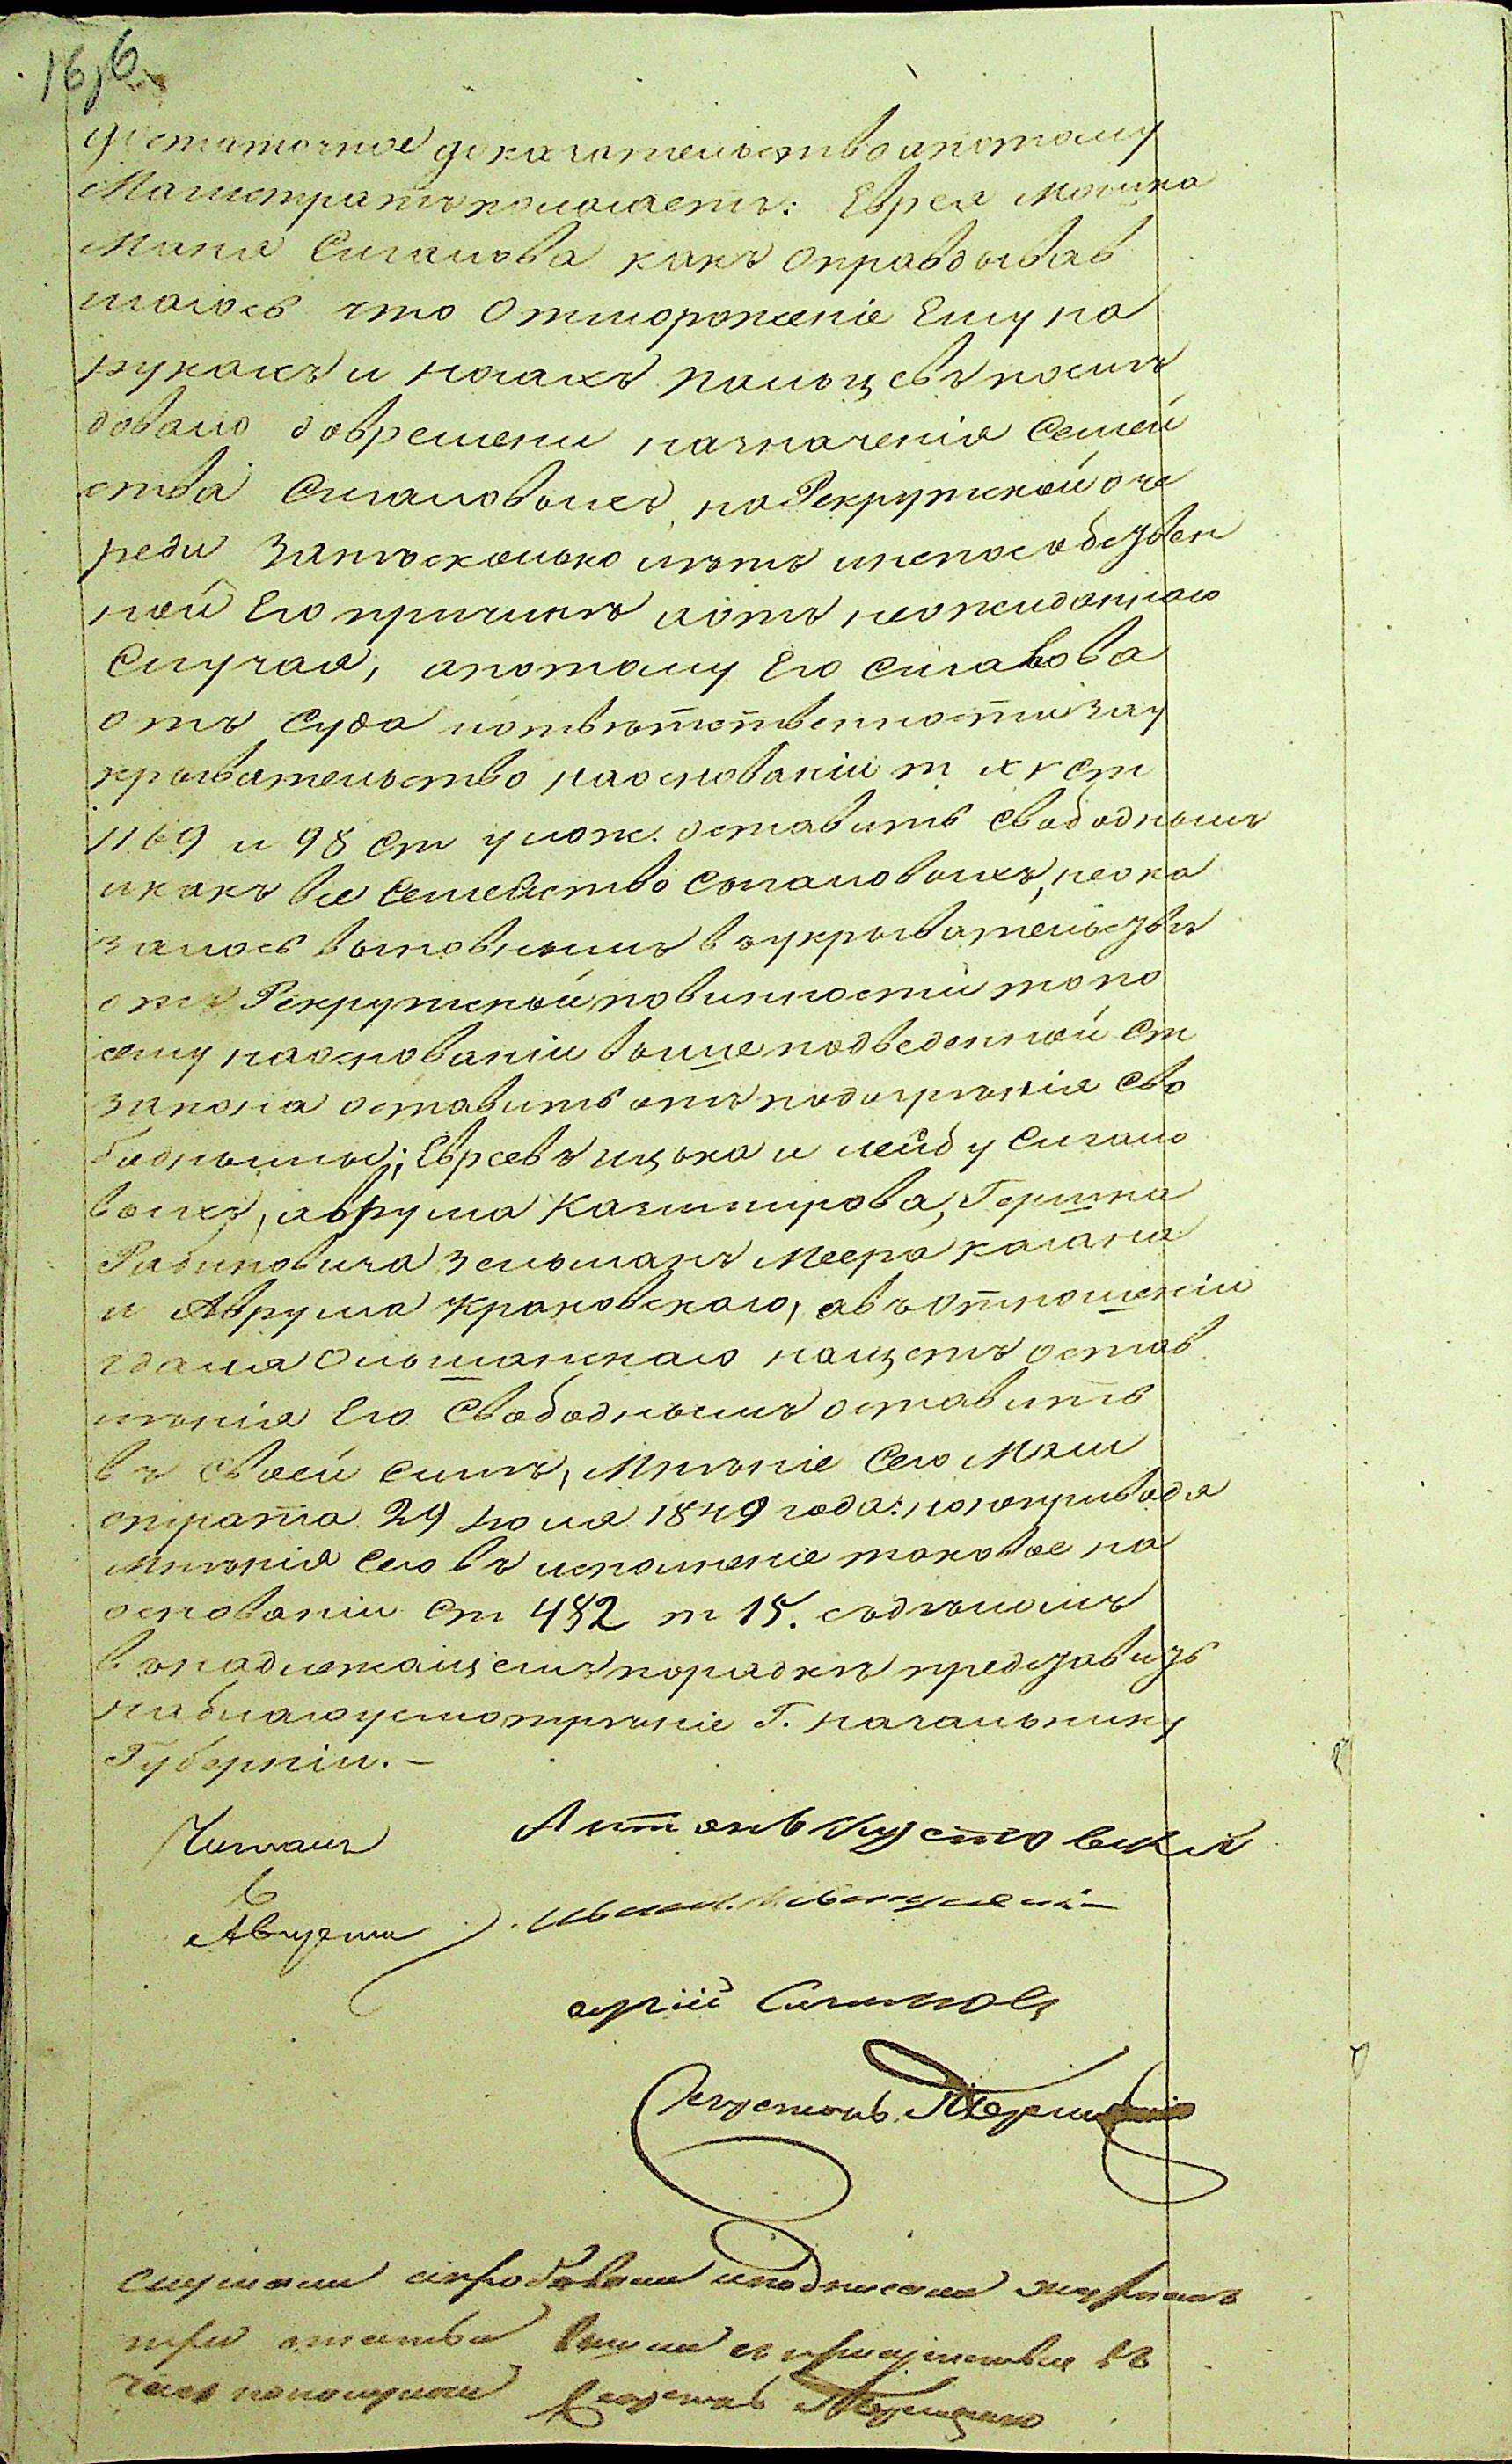 16,6
достаточное доказательство а потому
Магистратъ полагаетъ: Еврея Мошка
Сигалова какъ оправдывав
шагось что отмороженіе Ему на
рукахъ и ногахъ пальцевъ послѣ
довало до времени назначенія Семей
ства Сигаловыхъ на Рекрутской оче
реди за нѣсколько лѣтъ и не по собствен
ной Его причинѣ а отъ неожиданнаго
Случая, а потому Его Сигалова
отъ Суда и отвѣтственности за у
крывательство на основаніи т XV ст
1169 и 98 ст улож. оставить свободнымъ
и какъ все Семейство Сыгаловыхъ не ока
залось виновнымъ въ укрывательствѣ
отъ Рекрутской повинности то по
сему на основаніи выше подведенной ст
закона оставить отъ подозрѣнія сво
бодными; Евреевъ Ицька и Лейбу Сигало
выхъ, Аврума Казимирова, Гершка
Рабиновича Зельманъ Меера Кагана
и Аврума Краковскаго, а въ отношеніи
Ольшанскаго на щетъ остав
лѣнія Его Свободнымъ оставить
въ своей силѣ, Мнѣніе Сего Маги
страта 29 Іюля 1849 года: но не приводя
Мнѣнія Сего въ исполненіе таковое на
основаніи ст 482 т 15. съ дѣломъ
въ надлежащемъ порядкѣ представить
на благоусмотрѣніе Г. Начальнику
Губерніи.—
Читалъ Антонъ
6
Августа
Августинъ
слушали апробовали и подписали журналъ
при
часа пополудни Августинъ